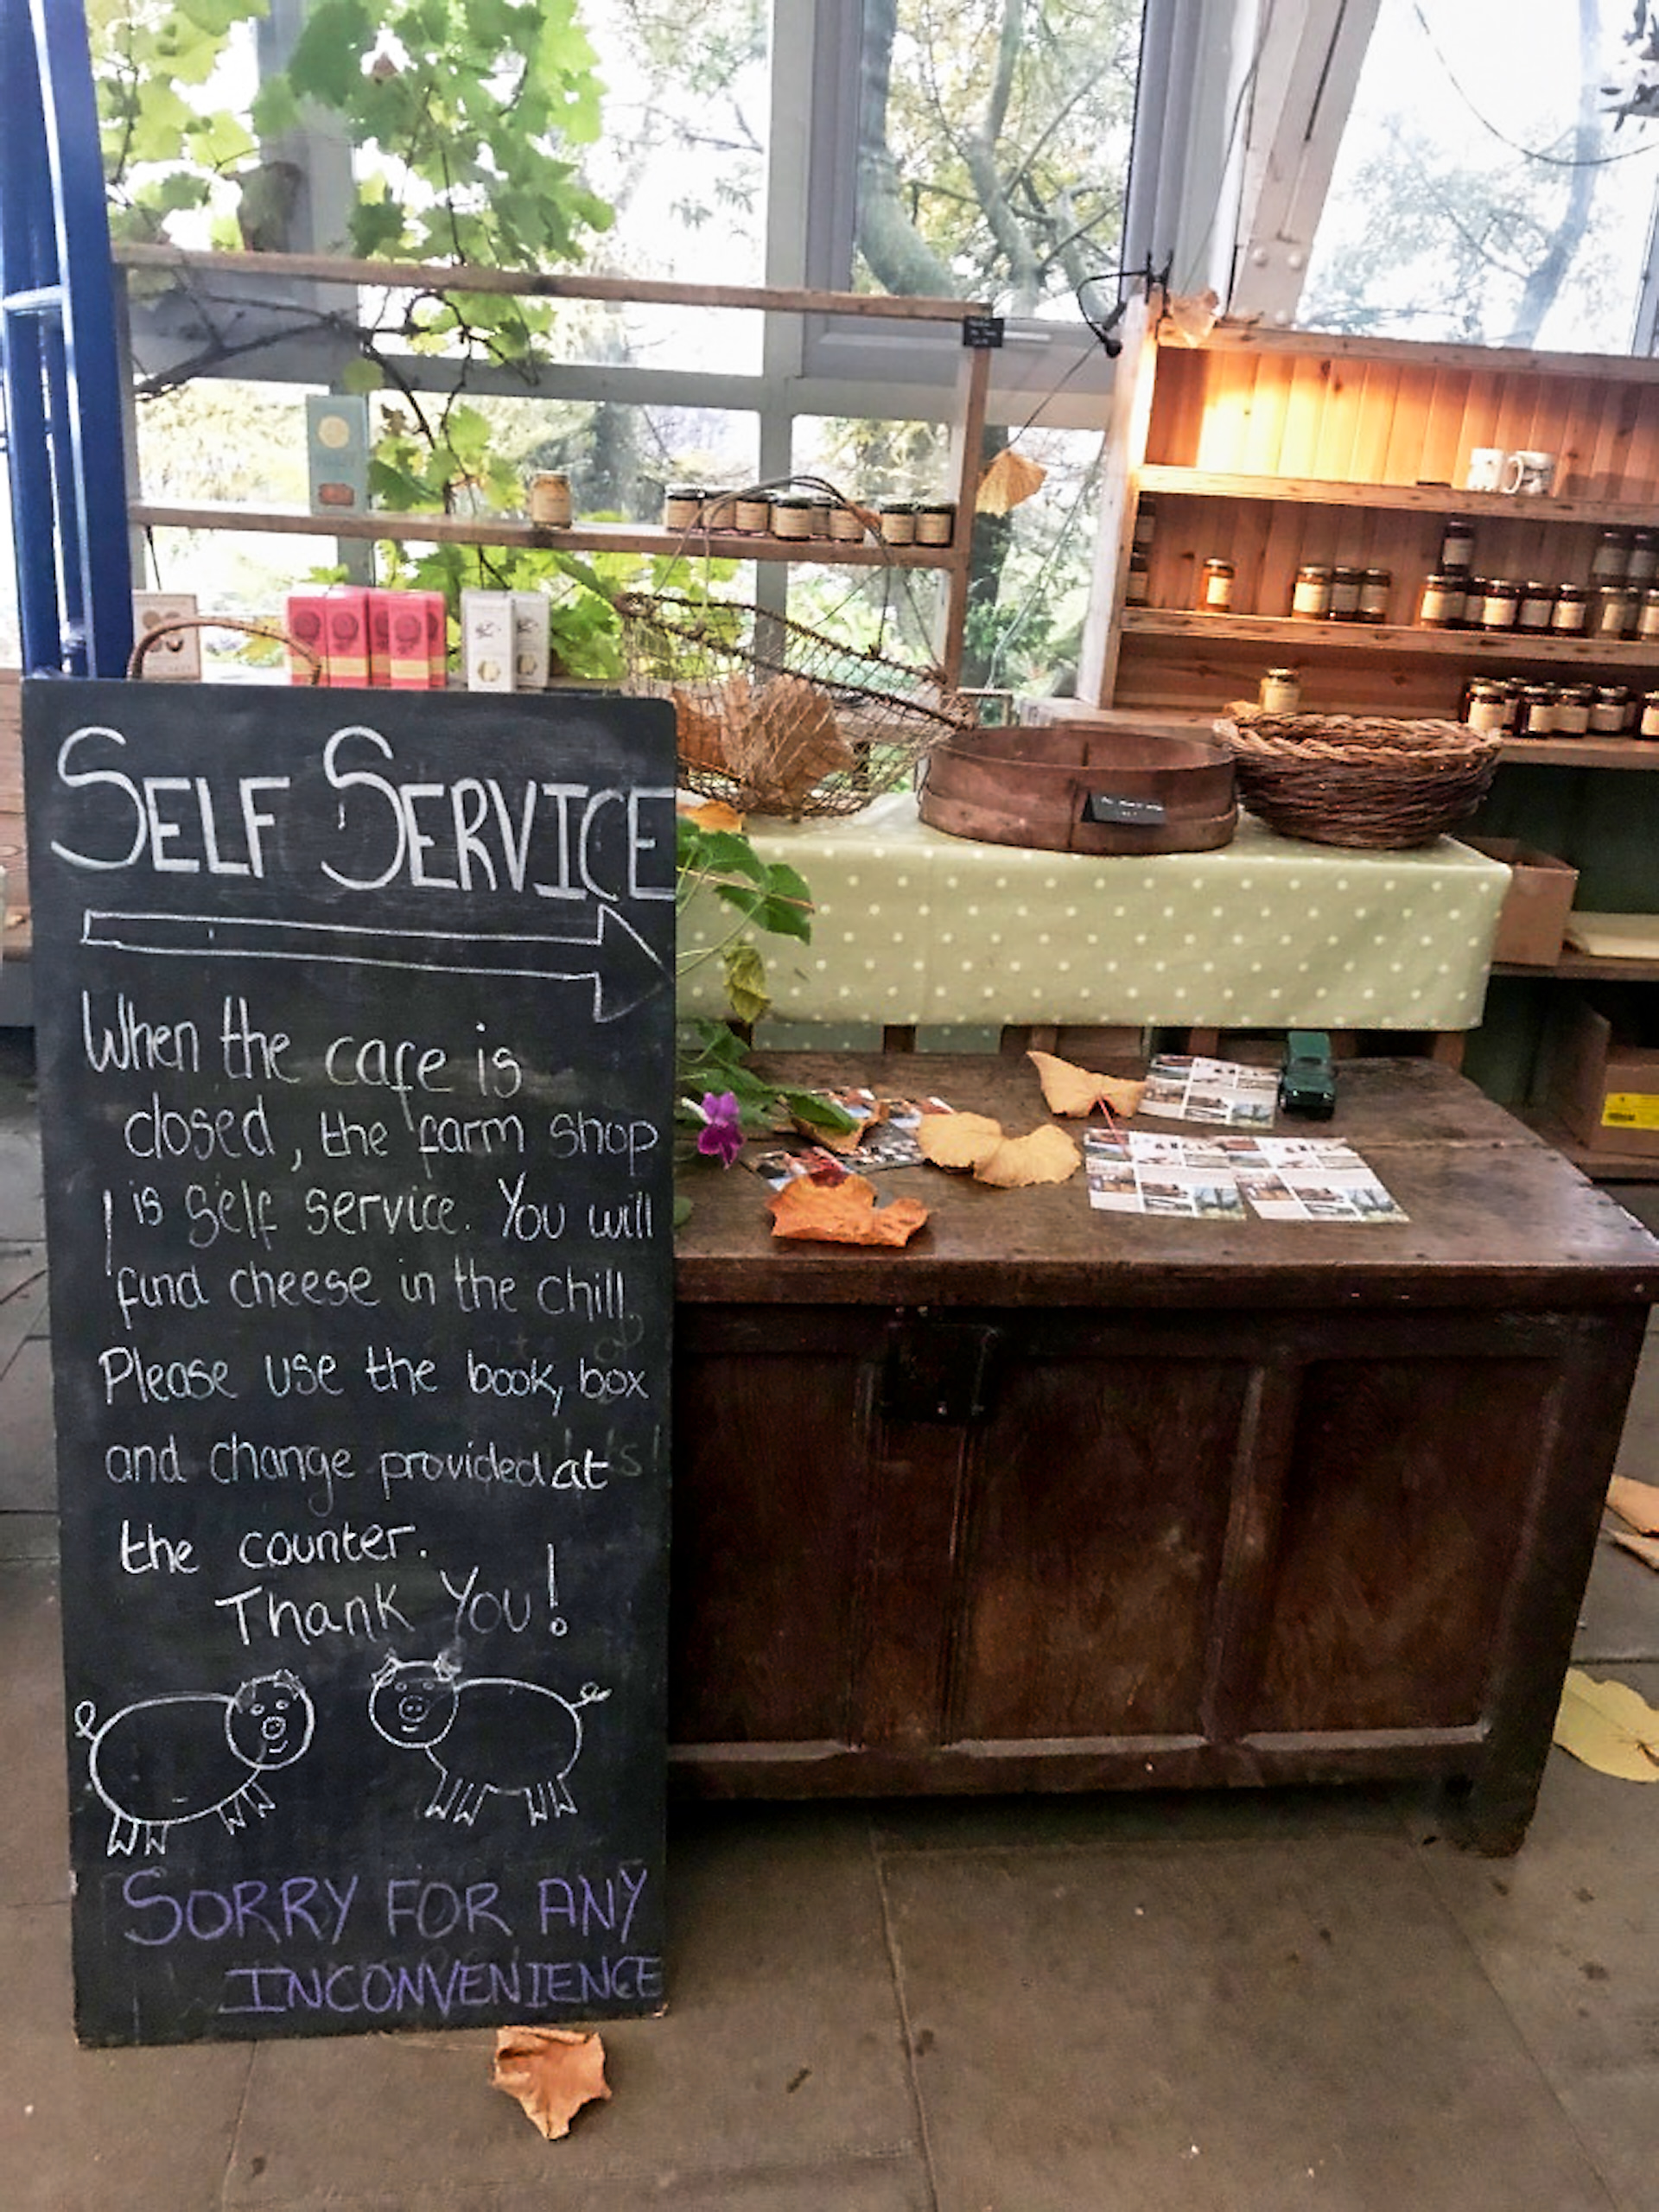 SELF SERVICE
When the cafe is
closed, the farm shop
is self service. You will
find cheese in the chill
Please use the book, box
and change provided at
the counter.
Thank You!
SORRY FOR ANY
INCONVENIENCE